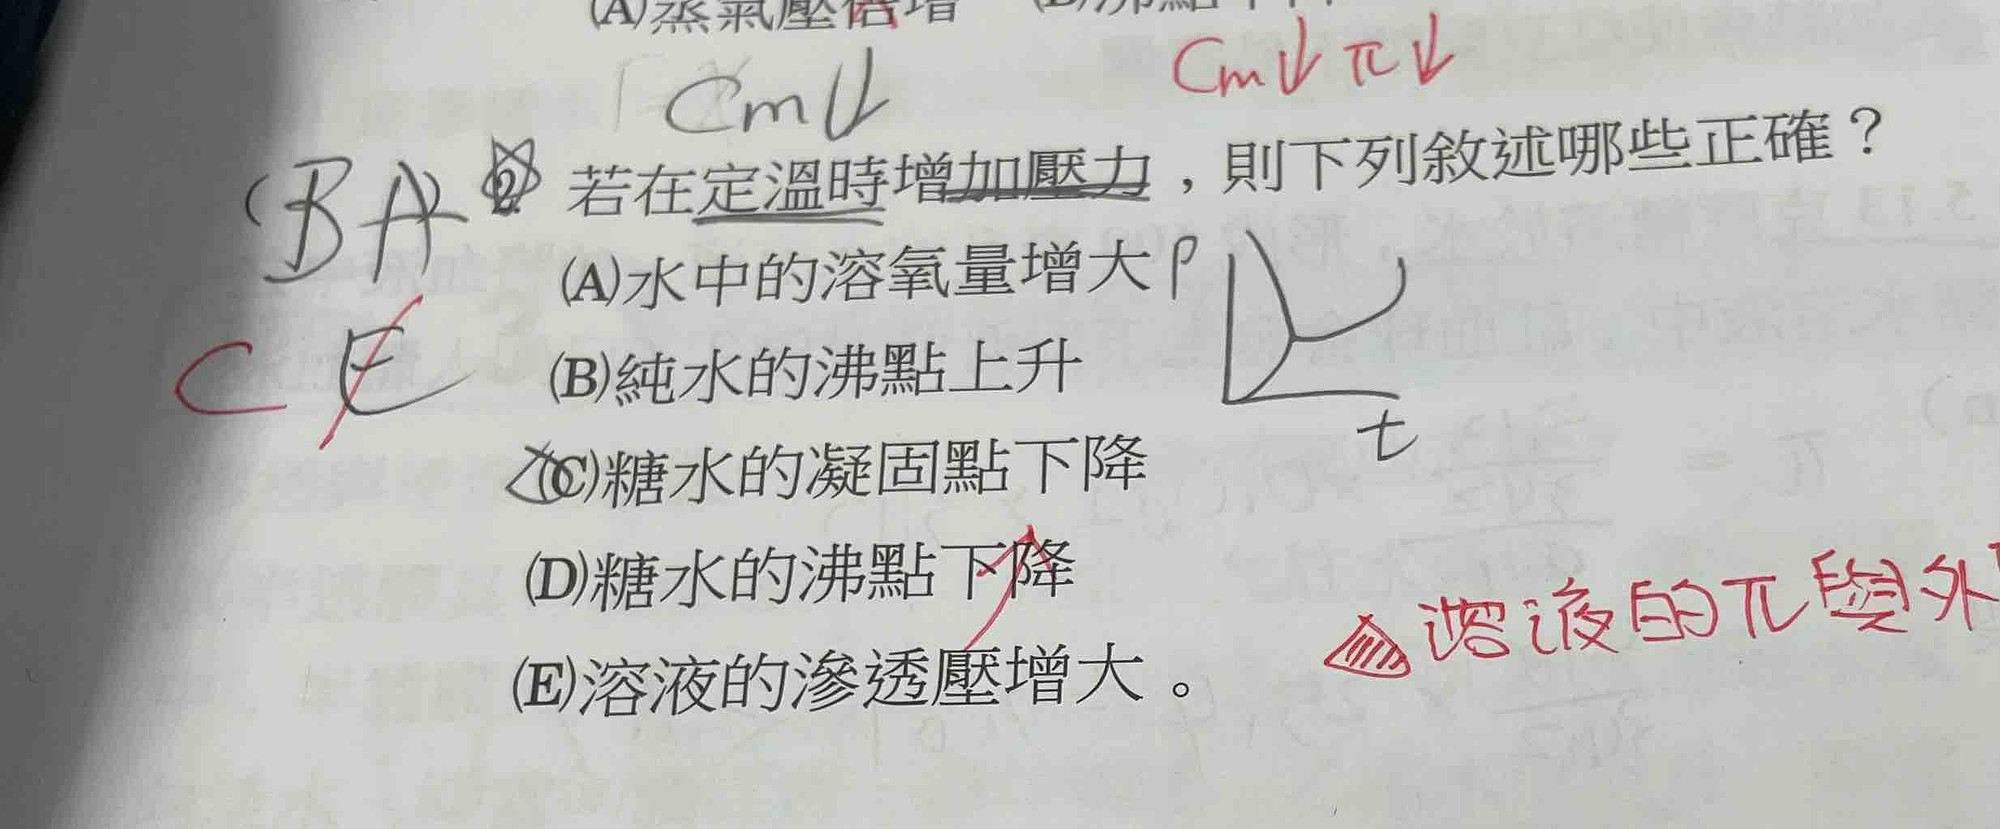 (A)蒸氣壓倍增
Cm↓
Cm↓ π↓
(BA)
2. 若在定溫時增加壓力，則下列敘述哪些正確？
(A)水中的溶氧量增大
P
C E
(B)純水的沸點上升
t
(C)糖水的凝固點下降
(D)糖水的沸點下降
△溶液的π與外
(E)溶液的滲透壓增大。